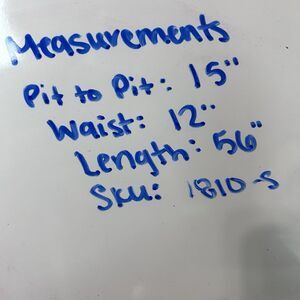 Measurements
Pit to Pit: 15"
Waist: 12"
Length: 56"
Sku: 1810-S